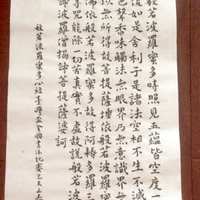 般若波羅蜜多時照見五蘊皆空度一
如是舍利子是諸法空相不生不滅
色聲香味觸法無眼界乃至無意識界無
以無所得故菩提薩埵依般若波羅蜜
佛依般若波羅蜜多故得阿耨多羅三
等咒能除一切苦真實不虛故說般若波
諦波羅僧揭諦菩提薩婆訶
般若波羅蜜多心經